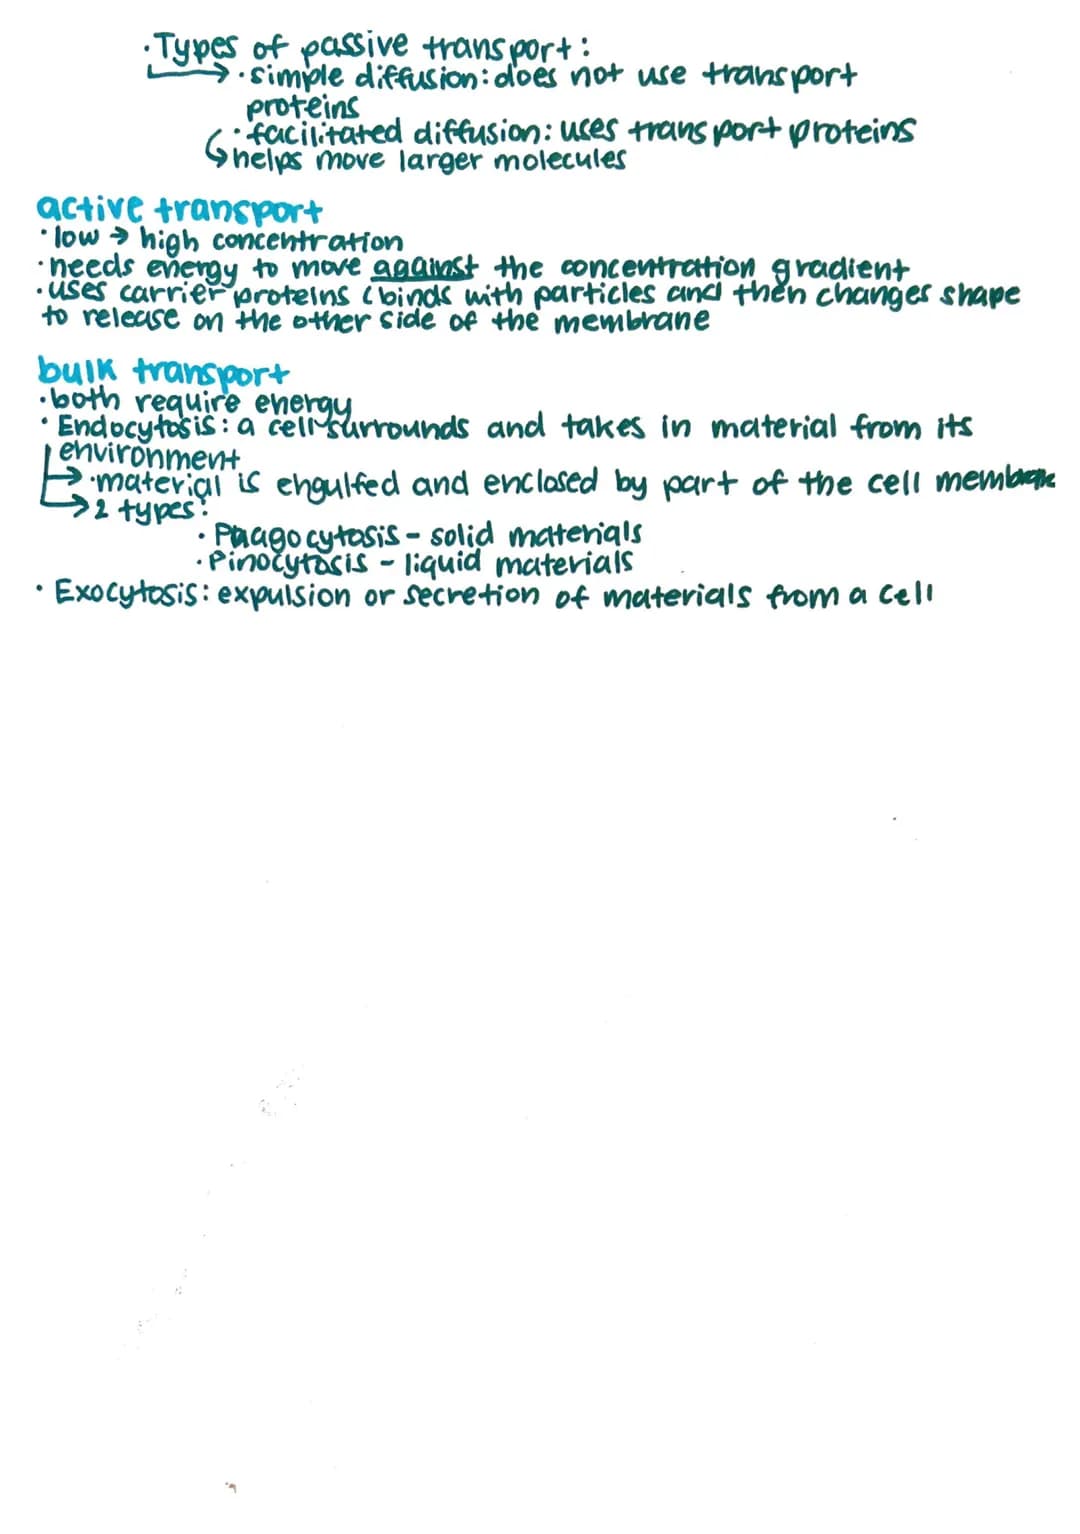 ·Types of passive transport:
→·simple diffusion: does not use transport
proteins
·facilitated diffusion: uses transport proteins
↳helps move larger molecules
active transport
·low → high concentration
·needs energy to move against the concentration gradient
·uses carrier proteins (binds with particles and then changes shape
to release on the other side of the membrane
bulk transport
·both require energy
·Endocytosis: a cell surrounds and takes in material from its
environment
→·material is engulfed and enclosed by part of the cell membrane
→2 types:
·Phagocytosis - solid materials
·Pinocytosis - liquid materials
·Exocytosis: expulsion or secretion of materials from a cell